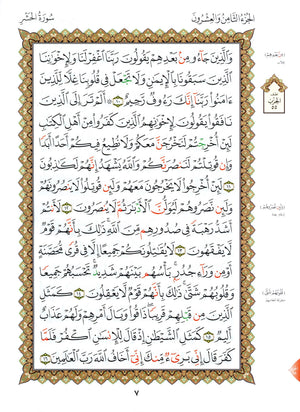 الجزء الثامن والعشرون
سورة الحشر
وَٱلَّذِينَ جَآءُو مِنۢ بَعْدِهِمْ يَقُولُونَ رَبَّنَا ٱغْفِرْ لَنَا وَلِإِخْوَٰنِنَا
ٱلَّذِينَ سَبَقُونَا بِٱلْإِيمَٰنِ وَلَا تَجْعَلْ فِى قُلُوبِنَا غِلًّا لِّلَّذِينَ
ءَامَنُوا۟ رَبَّنَآ إِنَّكَ رَءُوفٌ رَّحِيمٌ ١٠ أَلَمْ تَرَ إِلَى ٱلَّذِينَ
نَافَقُوا۟ يَقُولُونَ لِإِخْوَٰنِهِمُ ٱلَّذِينَ كَفَرُوا۟ مِنْ أَهْلِ ٱلْكِتَٰبِ
لَئِنْ أُخْرِجْتُمْ لَنَخْرُجَنَّ مَعَكُمْ وَلَا نُطِيعُ فِيكُمْ أَحَدًا أَبَدًا
وَإِن قُوتِلْتُمْ لَنَنصُرَنَّكُمْ وَٱللَّهُ يَشْهَدُ إِنَّهُمْ لَكَٰذِبُونَ
١١ لَئِنْ أُخْرِجُوا۟ لَا يَخْرُجُونَ مَعَهُمْ وَلَئِن قُوتِلُوا۟ لَا يَنصُرُونَهُمْ
وَلَئِن نَّصَرُوهُمْ لَيُوَلُّنَّ ٱلْأَدْبَٰرَ ثُمَّ لَا يُنصَرُونَ ١٢ لَأَنتُمْ
أَشَدُّ رَهْبَةً فِى صُدُورِهِم مِّنَ ٱللَّهِ ذَٰلِكَ بِأَنَّهُمْ قَوْمٌ
لَّا يَفْقَهُونَ ١٣ لَا يُقَٰتِلُونَكُمْ جَمِيعًا إِلَّا فِى قُرًى مُّحَصَّنَةٍ
أَوْ مِن وَرَآءِ جُدُرٍۭ بَأْسُهُم بَيْنَهُمْ شَدِيدٌ تَحْسَبُهُمْ جَمِيعًا
وَقُلُوبُهُمْ شَتَّىٰ ذَٰلِكَ بِأَنَّهُمْ قَوْمٌ لَّا يَعْقِلُونَ ١٤ كَمَثَلِ
ٱلَّذِينَ مِن قَبْلِهِمْ قَرِيبًا ذَاقُوا۟ وَبَالَ أَمْرِهِمْ وَلَهُمْ عَذَابٌ
أَلِيمٌ ١٥ كَمَثَلِ ٱلشَّيْطَٰنِ إِذْ قَالَ لِلْإِنسَٰنِ ٱكْفُرْ فَلَمَّا
كَفَرَ قَالَ إِنِّى بَرِىٓءٌ مِّنكَ إِنِّىٓ أَخَافُ ٱللَّهَ رَبَّ ٱلْعَٰلَمِينَ ١٦
٧